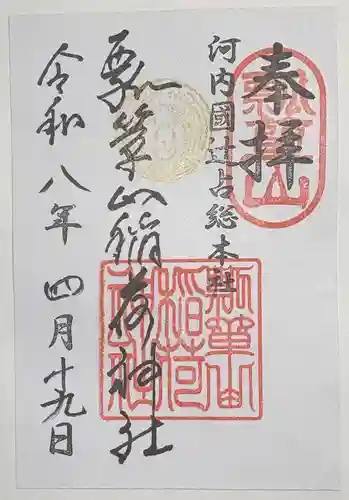 奉拝
瓢箪山
河内國辻占総本社
瓢箪山稲荷神社
瓢箪山
稲荷
神社
令和八年 四月廿九日